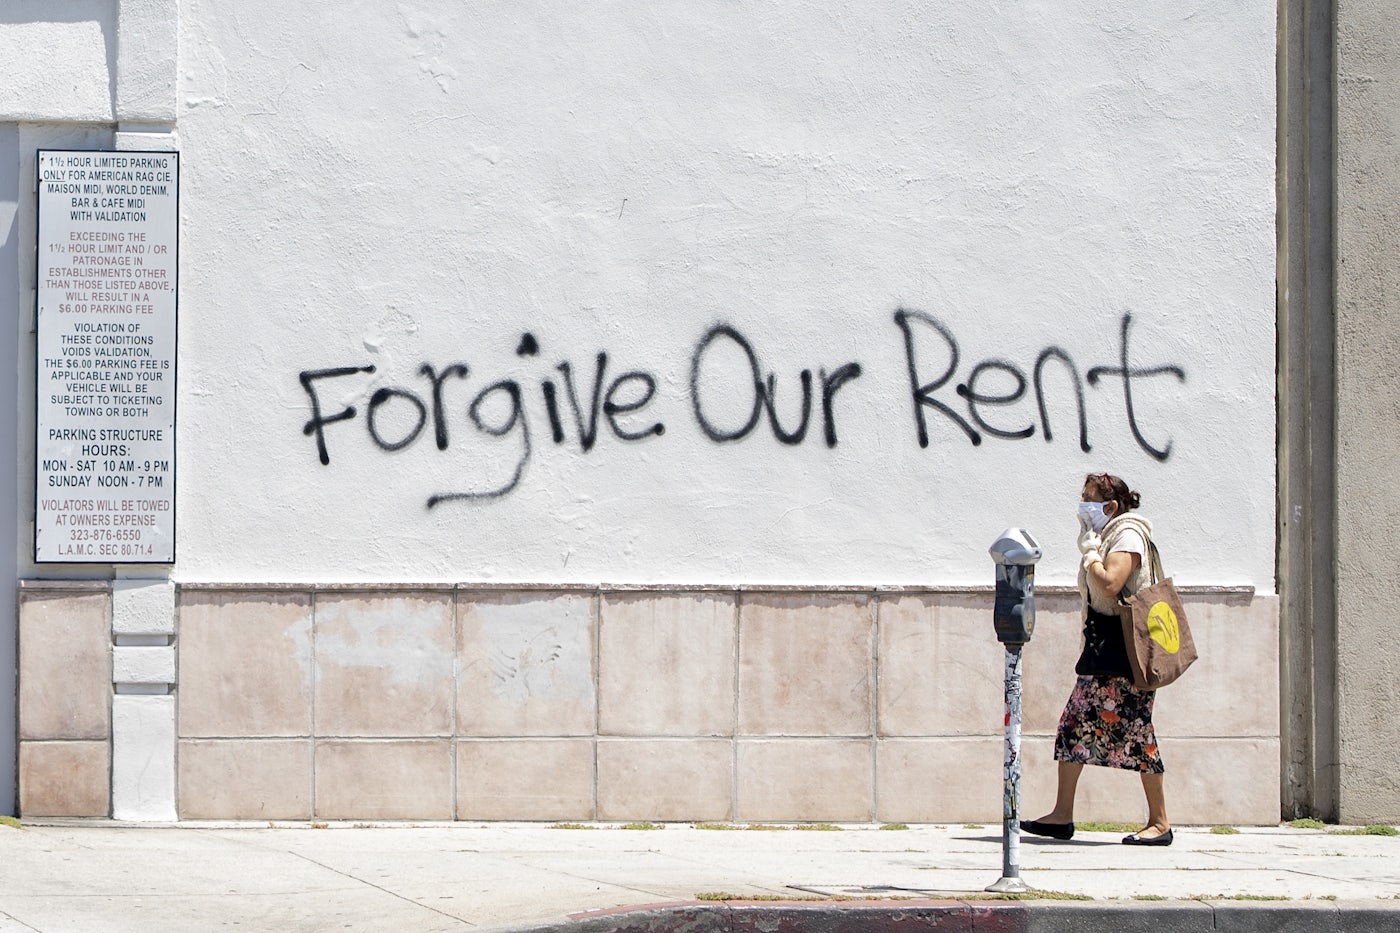 1 1/2 HOUR LIMITED PARKING
ONLY FOR AMERICAN RAG CIE,
MAISON MIDI, WORLD DENIM,
BAR & CAFE MIDI
WITH VALIDATION
EXCEEDING THE
1 1/2 HOUR LIMIT AND / OR
PATRONAGE IN
ESTABLISHMENTS OTHER
THAN THOSE LISTED ABOVE
WILL RESULT IN A
$6.00 PARKING FEE
VIOLATION OF
THESE CONDITIONS
VOIDS VALIDATION,
THE $6.00 PARKING FEE IS
APPLICABLE AND YOUR
VEHICLE WILL BE
SUBJECT TO TICKETING
TOWING OR BOTH
PARKING STRUCTURE
HOURS:
MON - SAT 10 AM - 9 PM
SUNDAY NOON - 7 PM
VIOLATORS WILL BE TOWED
AT OWNERS EXPENSE
323-876-6550
L.A.M.C. SEC 80.71.4
Forgive Our Rent